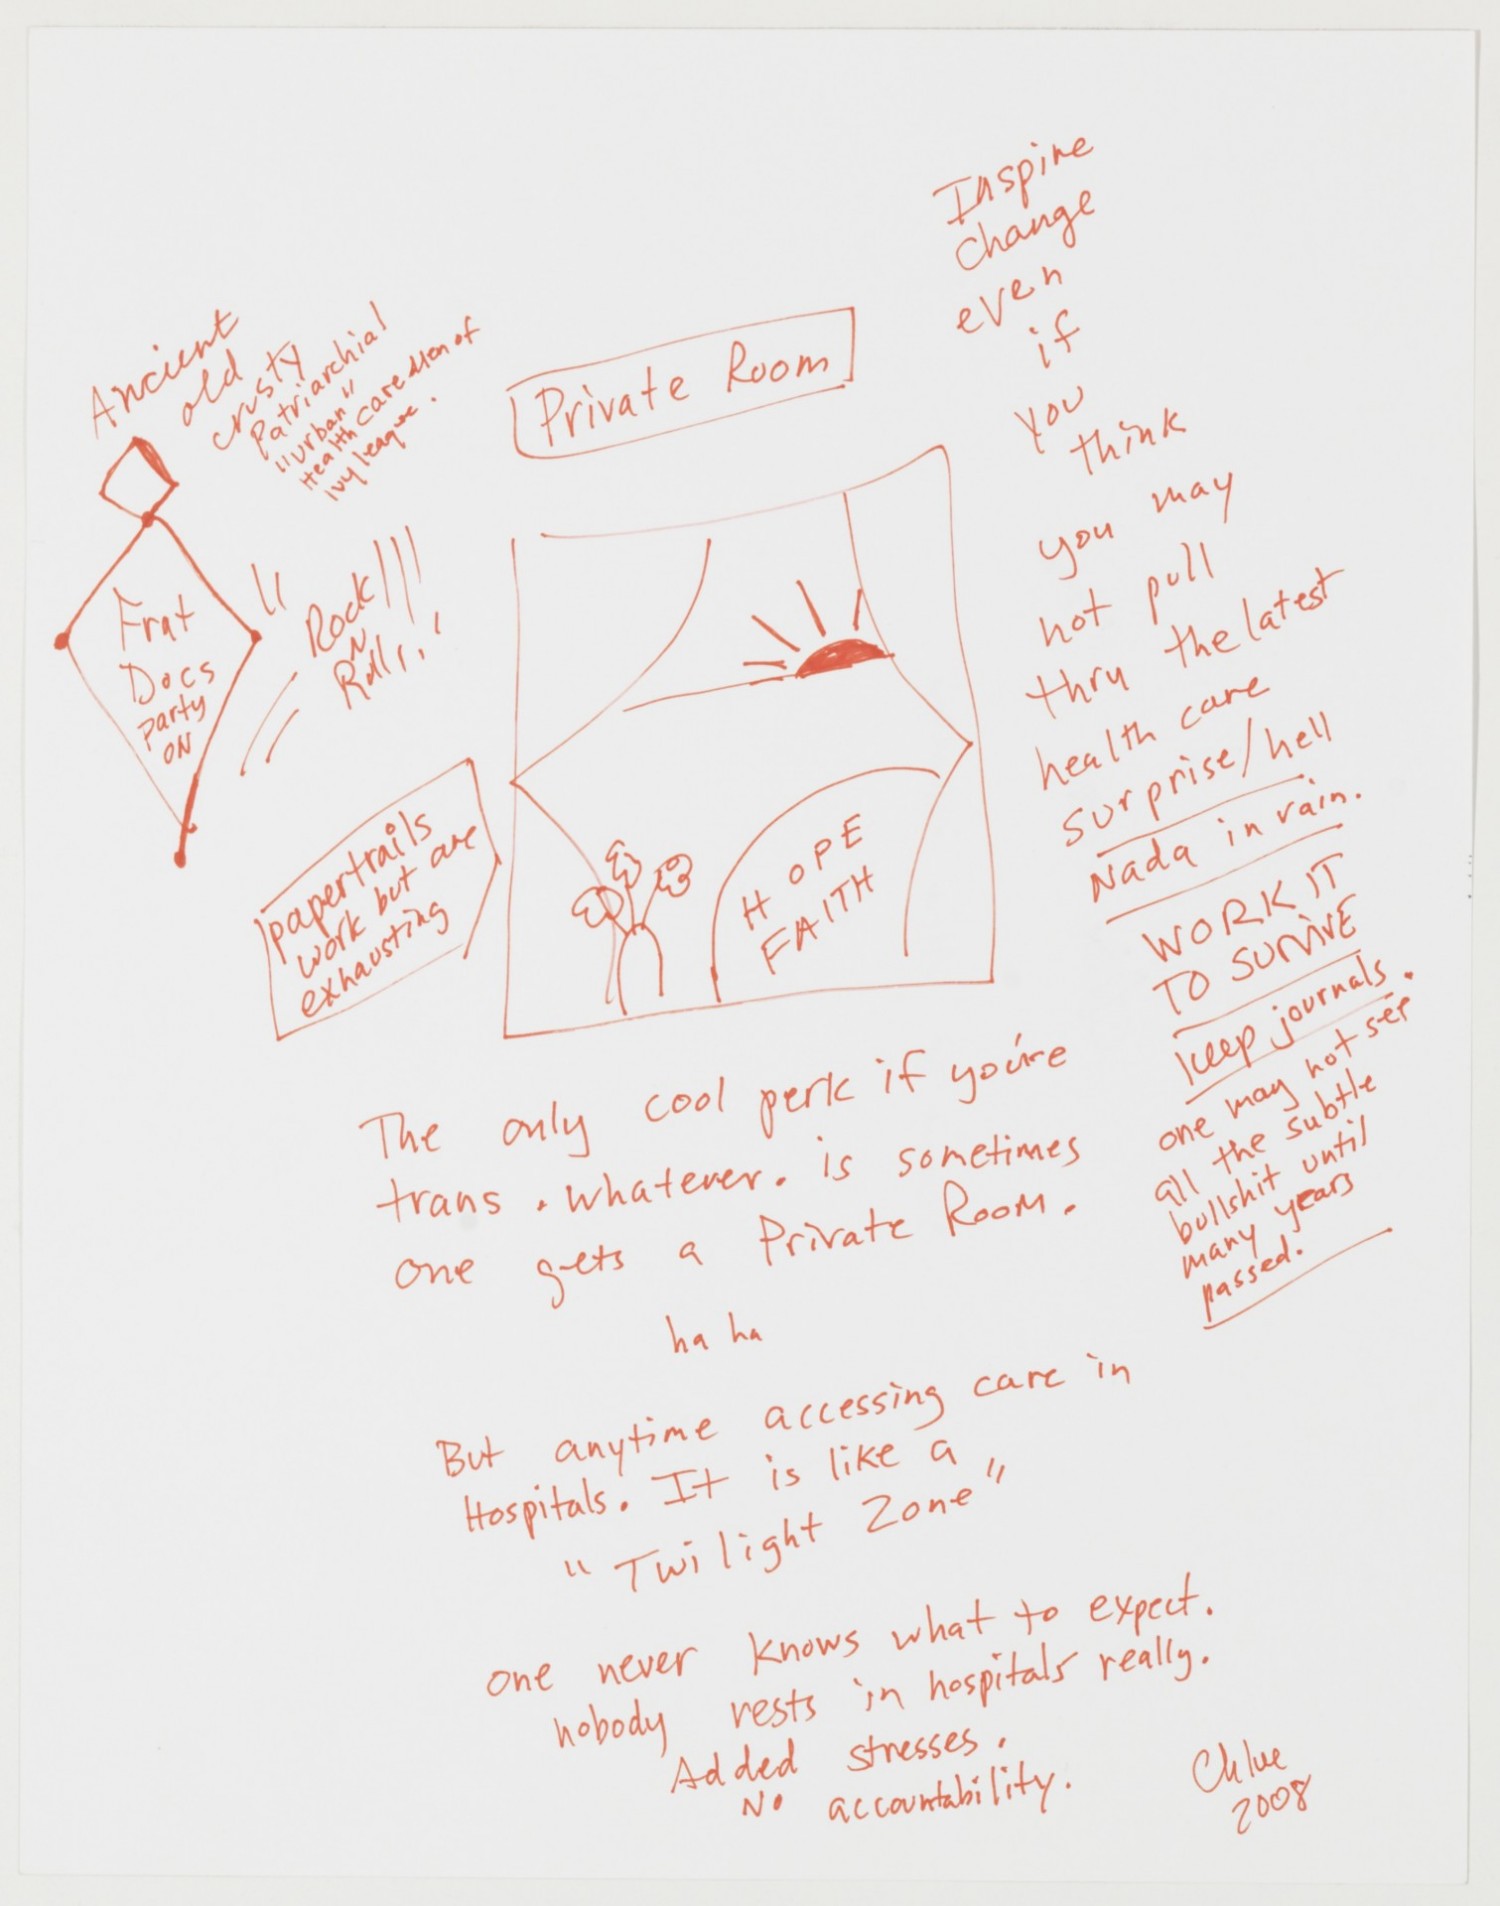 Ancient
old
crusty
Patriarchial
"urban"
Health care Men of
Ivy league.
Frat
Docs
party
ON
"Rock
N
Roll,,!
Private Room
papertrails
work but are
exhausting
HOPE
FAITH
Inspire
change
even
if
you
think
you may
not pull
thru the latest
health care
surprise/hell
Nada in vain.
WORK IT
TO SURVIVE
keep journals.
one may not see
all the subtle
bullshit until
many years
passed.
The only cool perk if you're
trans. whatever. is sometimes
one gets a Private Room.
ha ha
But anytime accessing care in
Hospitals. It is like a
"Twilight Zone"
one never knows what to expect.
nobody rests in hospitals really.
Added stresses.
No accountability.
Chloe
2008